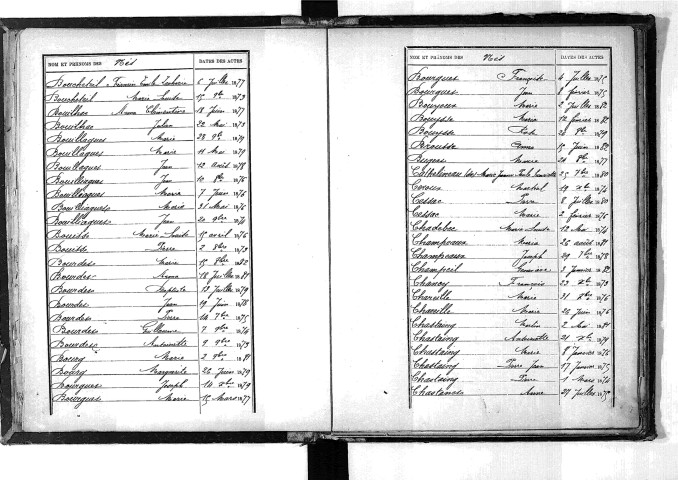 NOM ET PRÉNOMS DES Nés DATES DES ACTES
Boucheteil Firmin Emile 6 Juillet 1877
Boucheteil Marie Louise 15 9bre 1873
Bouthes Anna Clémentine 18 Juin 1877
Bouthes Julien 22 Mai 1875
Bouillagues Marie 28 9bre 1879
Bouillagues Marie 11 Mai 1879
Bouillagues Jean 12 août 1878
Bouillagues Jean 10 8bre 1876
Bouillagues Maria 7 Juin 1876
Bouillagues Marie 31 Mai 1876
Bouillagues Jean 20 9bre 1874
Bouisse Marie Louise 15 avril 1876
Bouisse Pierre 2 8bre 1873
Bourdes Marie 15 8bre 1882
Bourdes Anna 18 Juillet 1881
Bourdes Baptiste 13 Juillet 1879
Bourdes Jean 19 Juin 1878
Bourdes Pierre 14 7bre 1875
Bourdes Guillaume 7 9bre 1874
Bourdes Antoinette 9 9bre 1873
Bourg Marie 2 9bre 1881
Bourg Marguerite 26 Juin 1879
Bourgues Joseph 14 Xbre 1879
Bourgues Marie 15 Mars 1877
NOM ET PRÉNOMS DES Nés DATES DES ACTES
Bourgues Françoise 4 Juillet 1875
Bourgues Jean 8 février 1875
Marie 2 Juillet 1882
Bouysse Maria 12 février 1882
Bouysse 20 9bre 1879
Brousse 15 Juin 1882
Marie 20 8bre 1877
25 7bre 1880
Martial 19 Xbre 1874
Cessac Pierre 8 Juillet 1880
Cessac Marie 2 février 1876
Chadebec Marie Louise 12 Mai 1874
Champeaux Maria 26 août 1881
Champeaux Joseph 29 7bre 1878
Champeil 3 Janvier 1882
Chancy François 23 Xbre 1873
Charville Marie 31 8bre 1876
Charville Marie 26 Juin 1876
Chastaing Martin 2 Mai 1881
Chastaing Antoinette 21 Xbre 1879
Chastaing Marie 8 Janvier 1876
Chastaing Pierre Jean 17 Janvier 1875
Chastaing Pierre 1 Mars 1874
Chastanet Anne 27 Juillet 1875